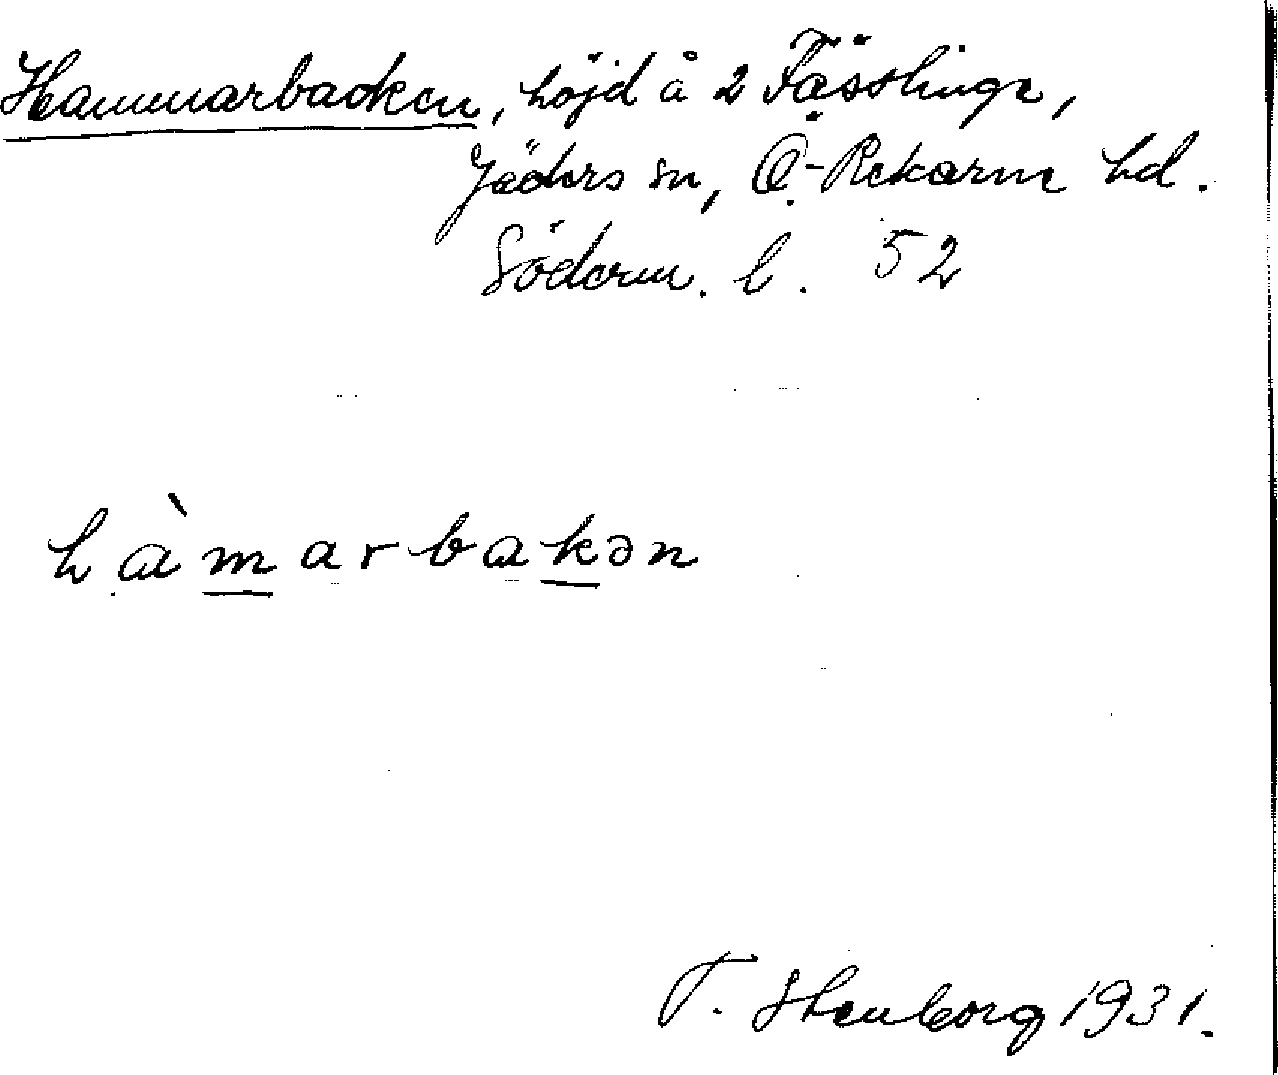 Hammarbacken, höjd å 2 Fässlinge,
Jäders sn, Ö-Rekarne hd.
Söderm. l. 52
hàmarbakən
T. Stenborg 1931.